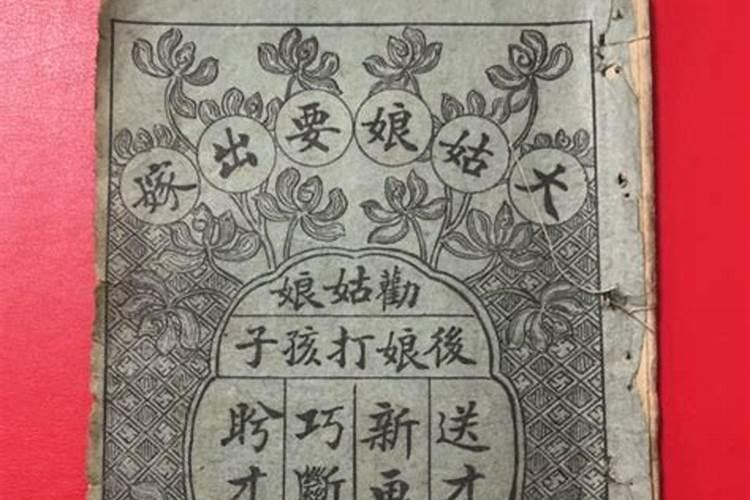 大姑娘要出嫁
勸姑娘
後娘打孩子
送
新
巧斷
盼